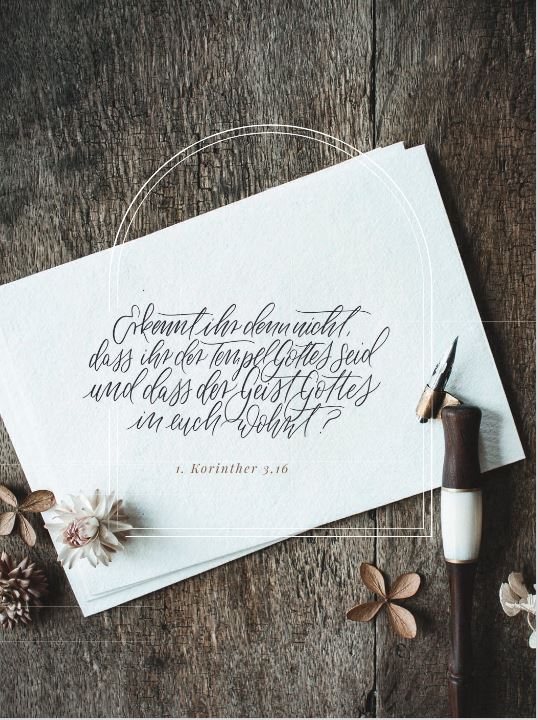 Erkennt ihr denn nicht,
dass ihr der Tempel Gottes seid
und dass der Geist Gottes
in euch wohnt?
1. Korinther 3,16